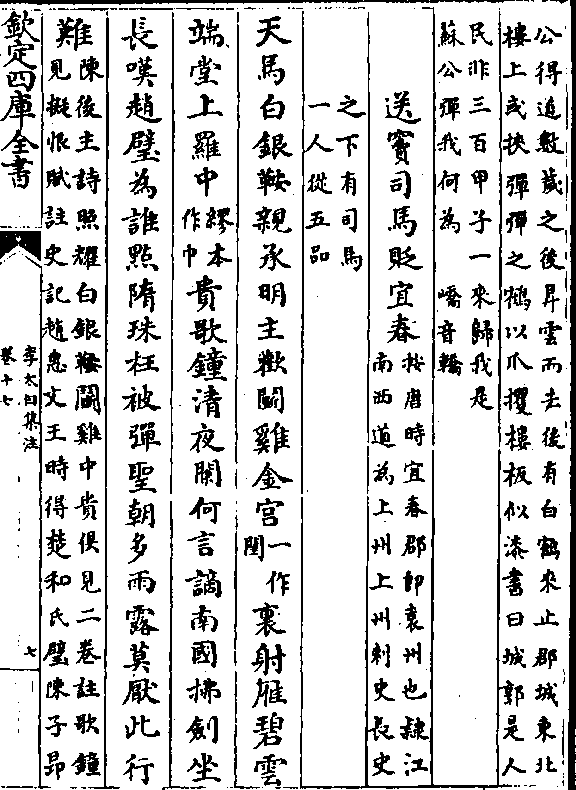 公得道數歲之後昇雲而去後有白鶴來止郡城東北
樓上或挾彈彈之鶴以爪攫樓板似漆書曰城郭是人
民非三百甲子一來歸我是
蘇公彈我何為　嶠音轎
送竇司馬貶宜春
按唐時宜春郡即袁州也隸江
南西道為上州上州刺史長史
之下有司馬
一人從五品
天馬白銀鞍親承明主歡鬬雞金宮
一作
閨
裏射雁碧雲
端堂上羅中
繆本
作巾
貴歌鐘清夜闌何言謫南國拂劍坐
長嘆趙璧為誰點隋珠枉被彈聖朝多雨露莫厭此行
難
陳後主詩照耀白銀鞍鬬雞中貴俱見二卷註歌鐘
見擬恨賦註史記趙惠文王時得楚和氏璧陳子昂
欽定四庫全書
李太白集注
卷十七
七